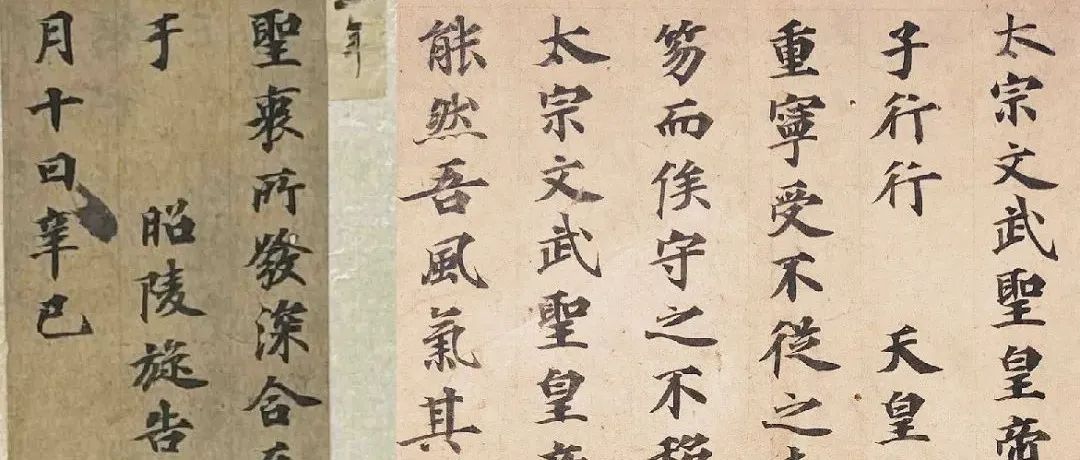 太宗文武聖皇帝
子行行 天皇
重寧受不從之
笏而俟守之不
太宗文武聖皇帝
能然吾風氣其
年
聖衷所發深合
于 昭陵旋告
月十日辛巳